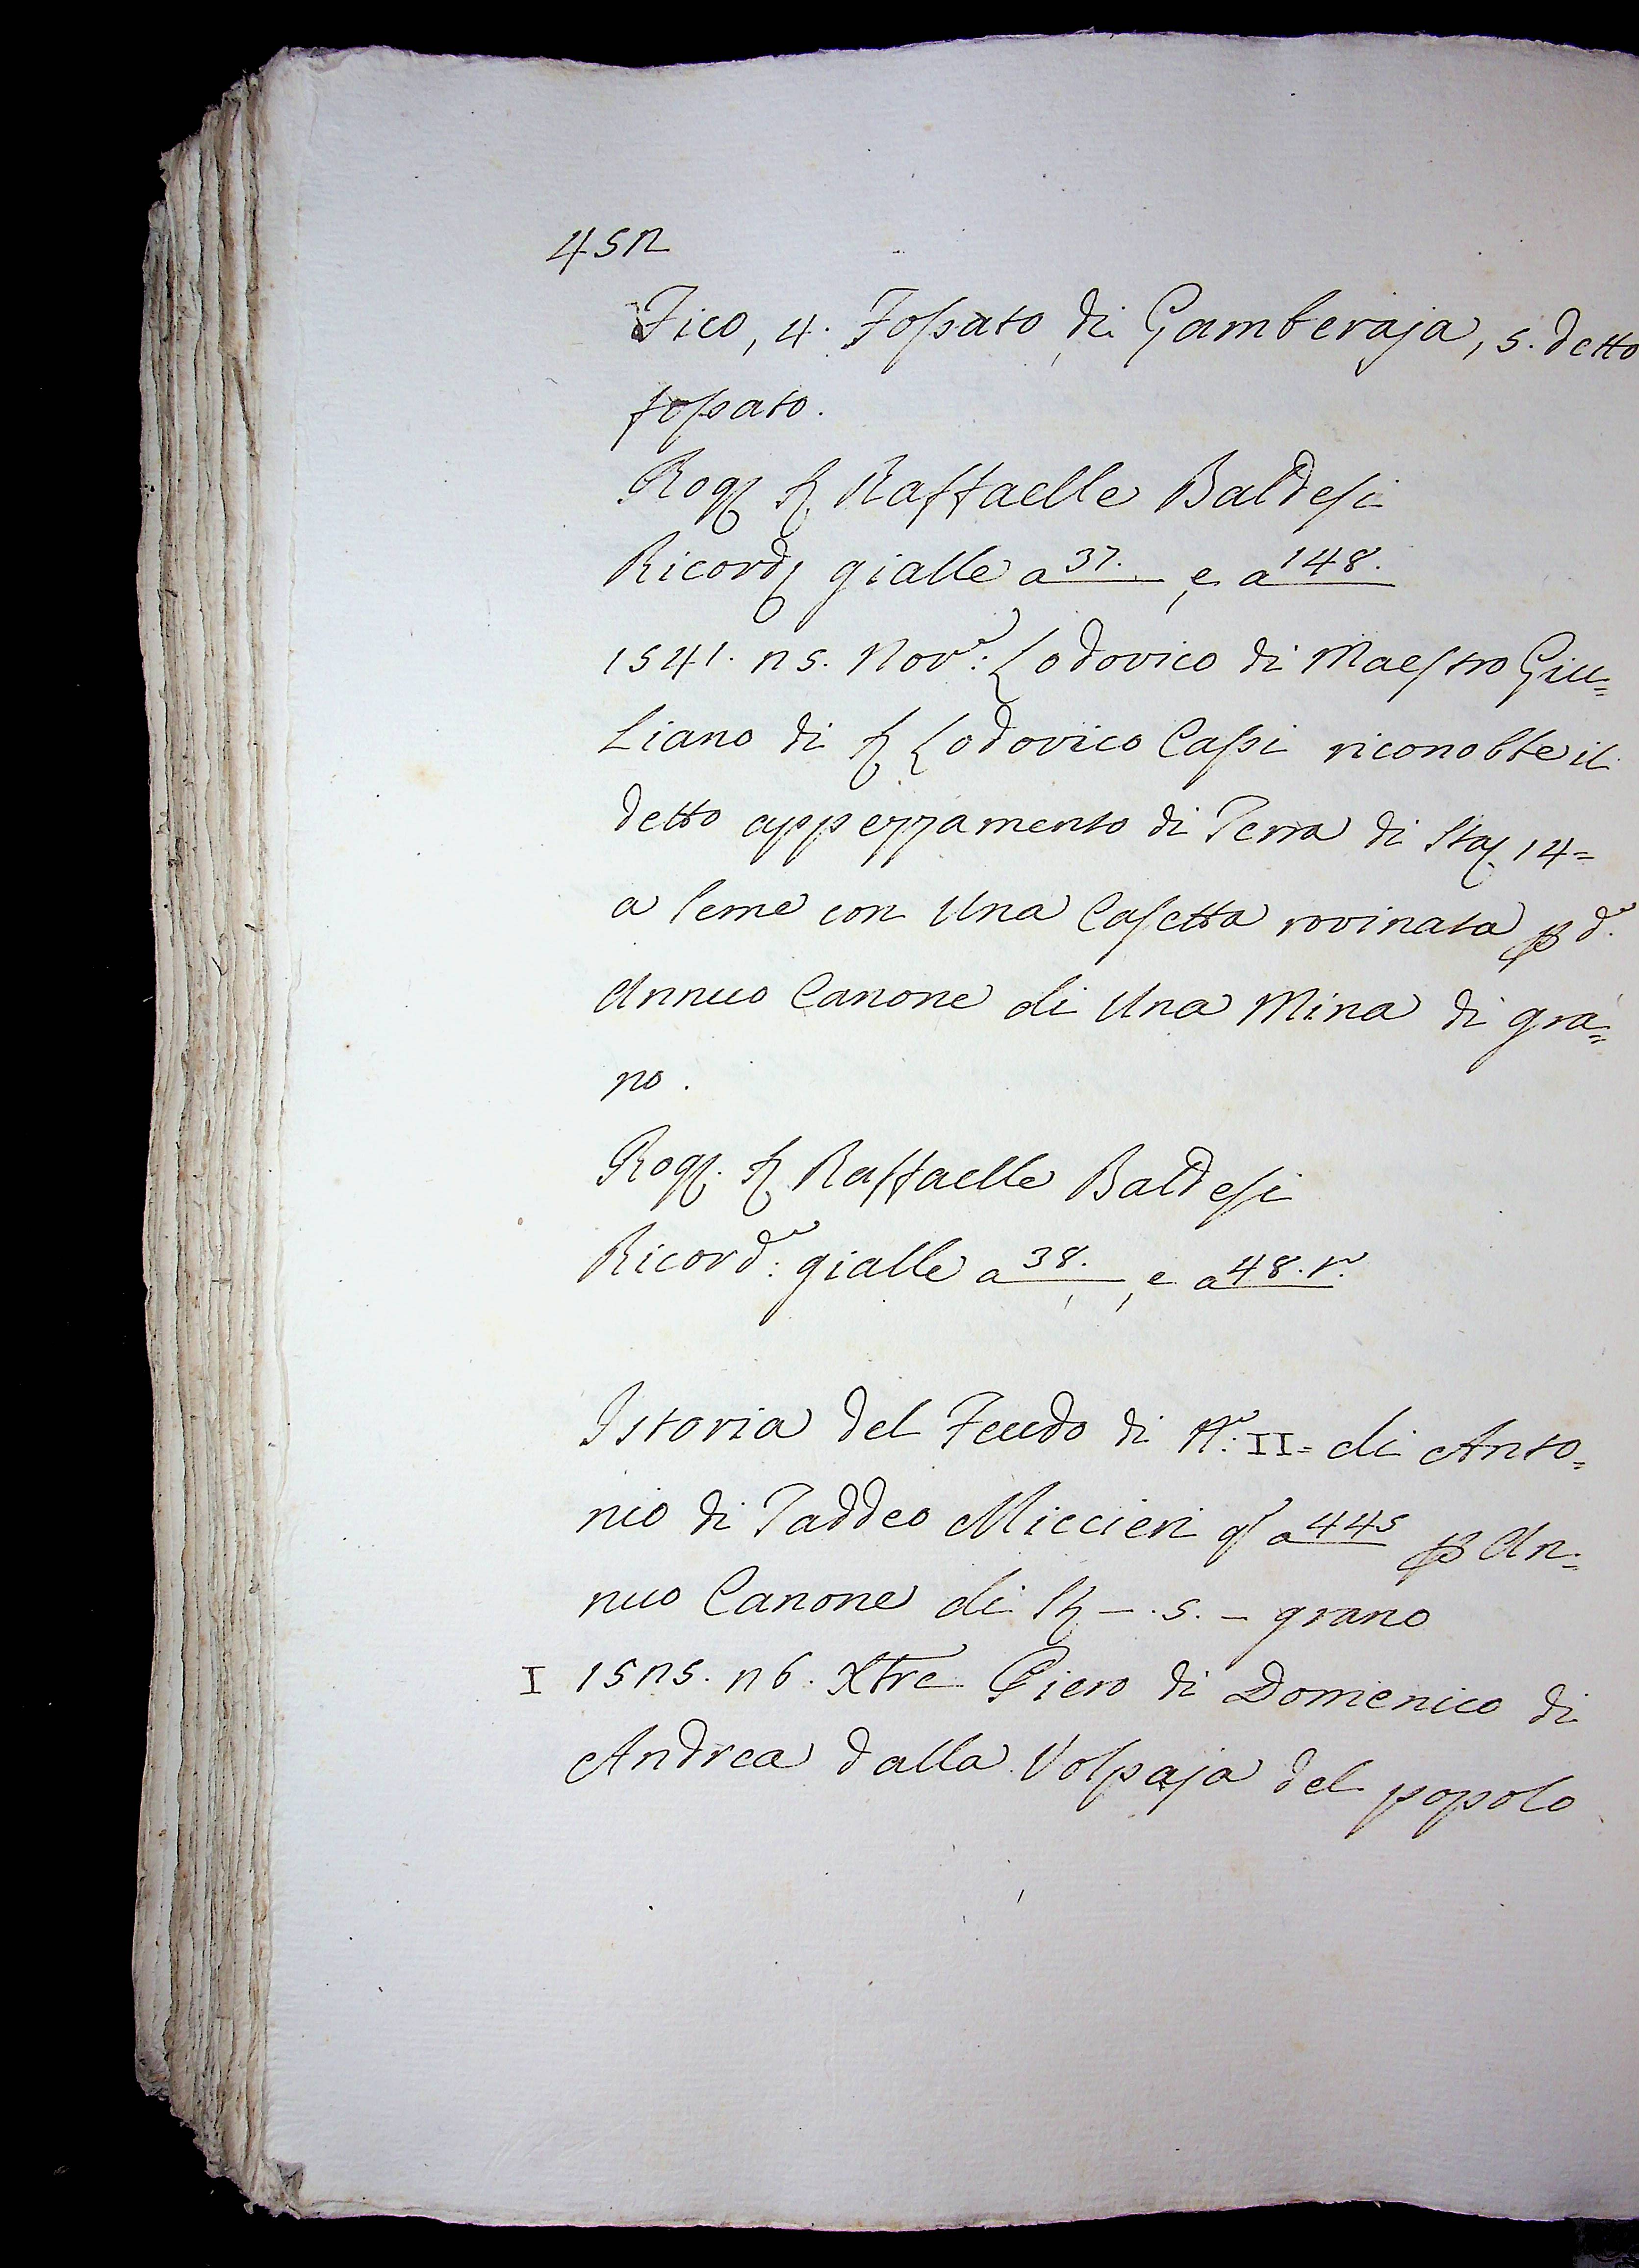 452
Fico, 4. Fossato di Gamberaja, 5. detto
fossato.
Rog. S. Raffaelle Baldesi
Ricord. gialle a 37. , e a 148.
1541. 25. Nov.e: Lodovico di Maestro Giu=
liano di S. Lodovico Cassi riconobbe il
detto appezzamento di Terra di Sta. 14=
a seme con Una Casetta rovinata p d.o
Annuo Canone di Una Mina di gra=
no.
Rog. S. Raffaelle Baldesi
Ricord.e: gialle a 38. , e a 48. t.o
Istoria del Feudo di N.o: II= di Anto=
nio di Taddeo Miccieri q a 445 p An=
nuo Canone di St. — . 5. — grano
I 1525. 26. Xbre Piero di Domenico di
Andrea dalla Volpaja del popolo